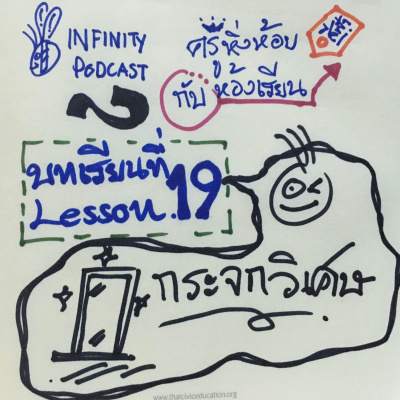 INFINITY
PODCAST
ครูหิ่งห้อย
กับ ห้องเรียน
บทเรียนที่ 19
Lesson.
กระจกวิเศษ
www.thaiciviceducation.org